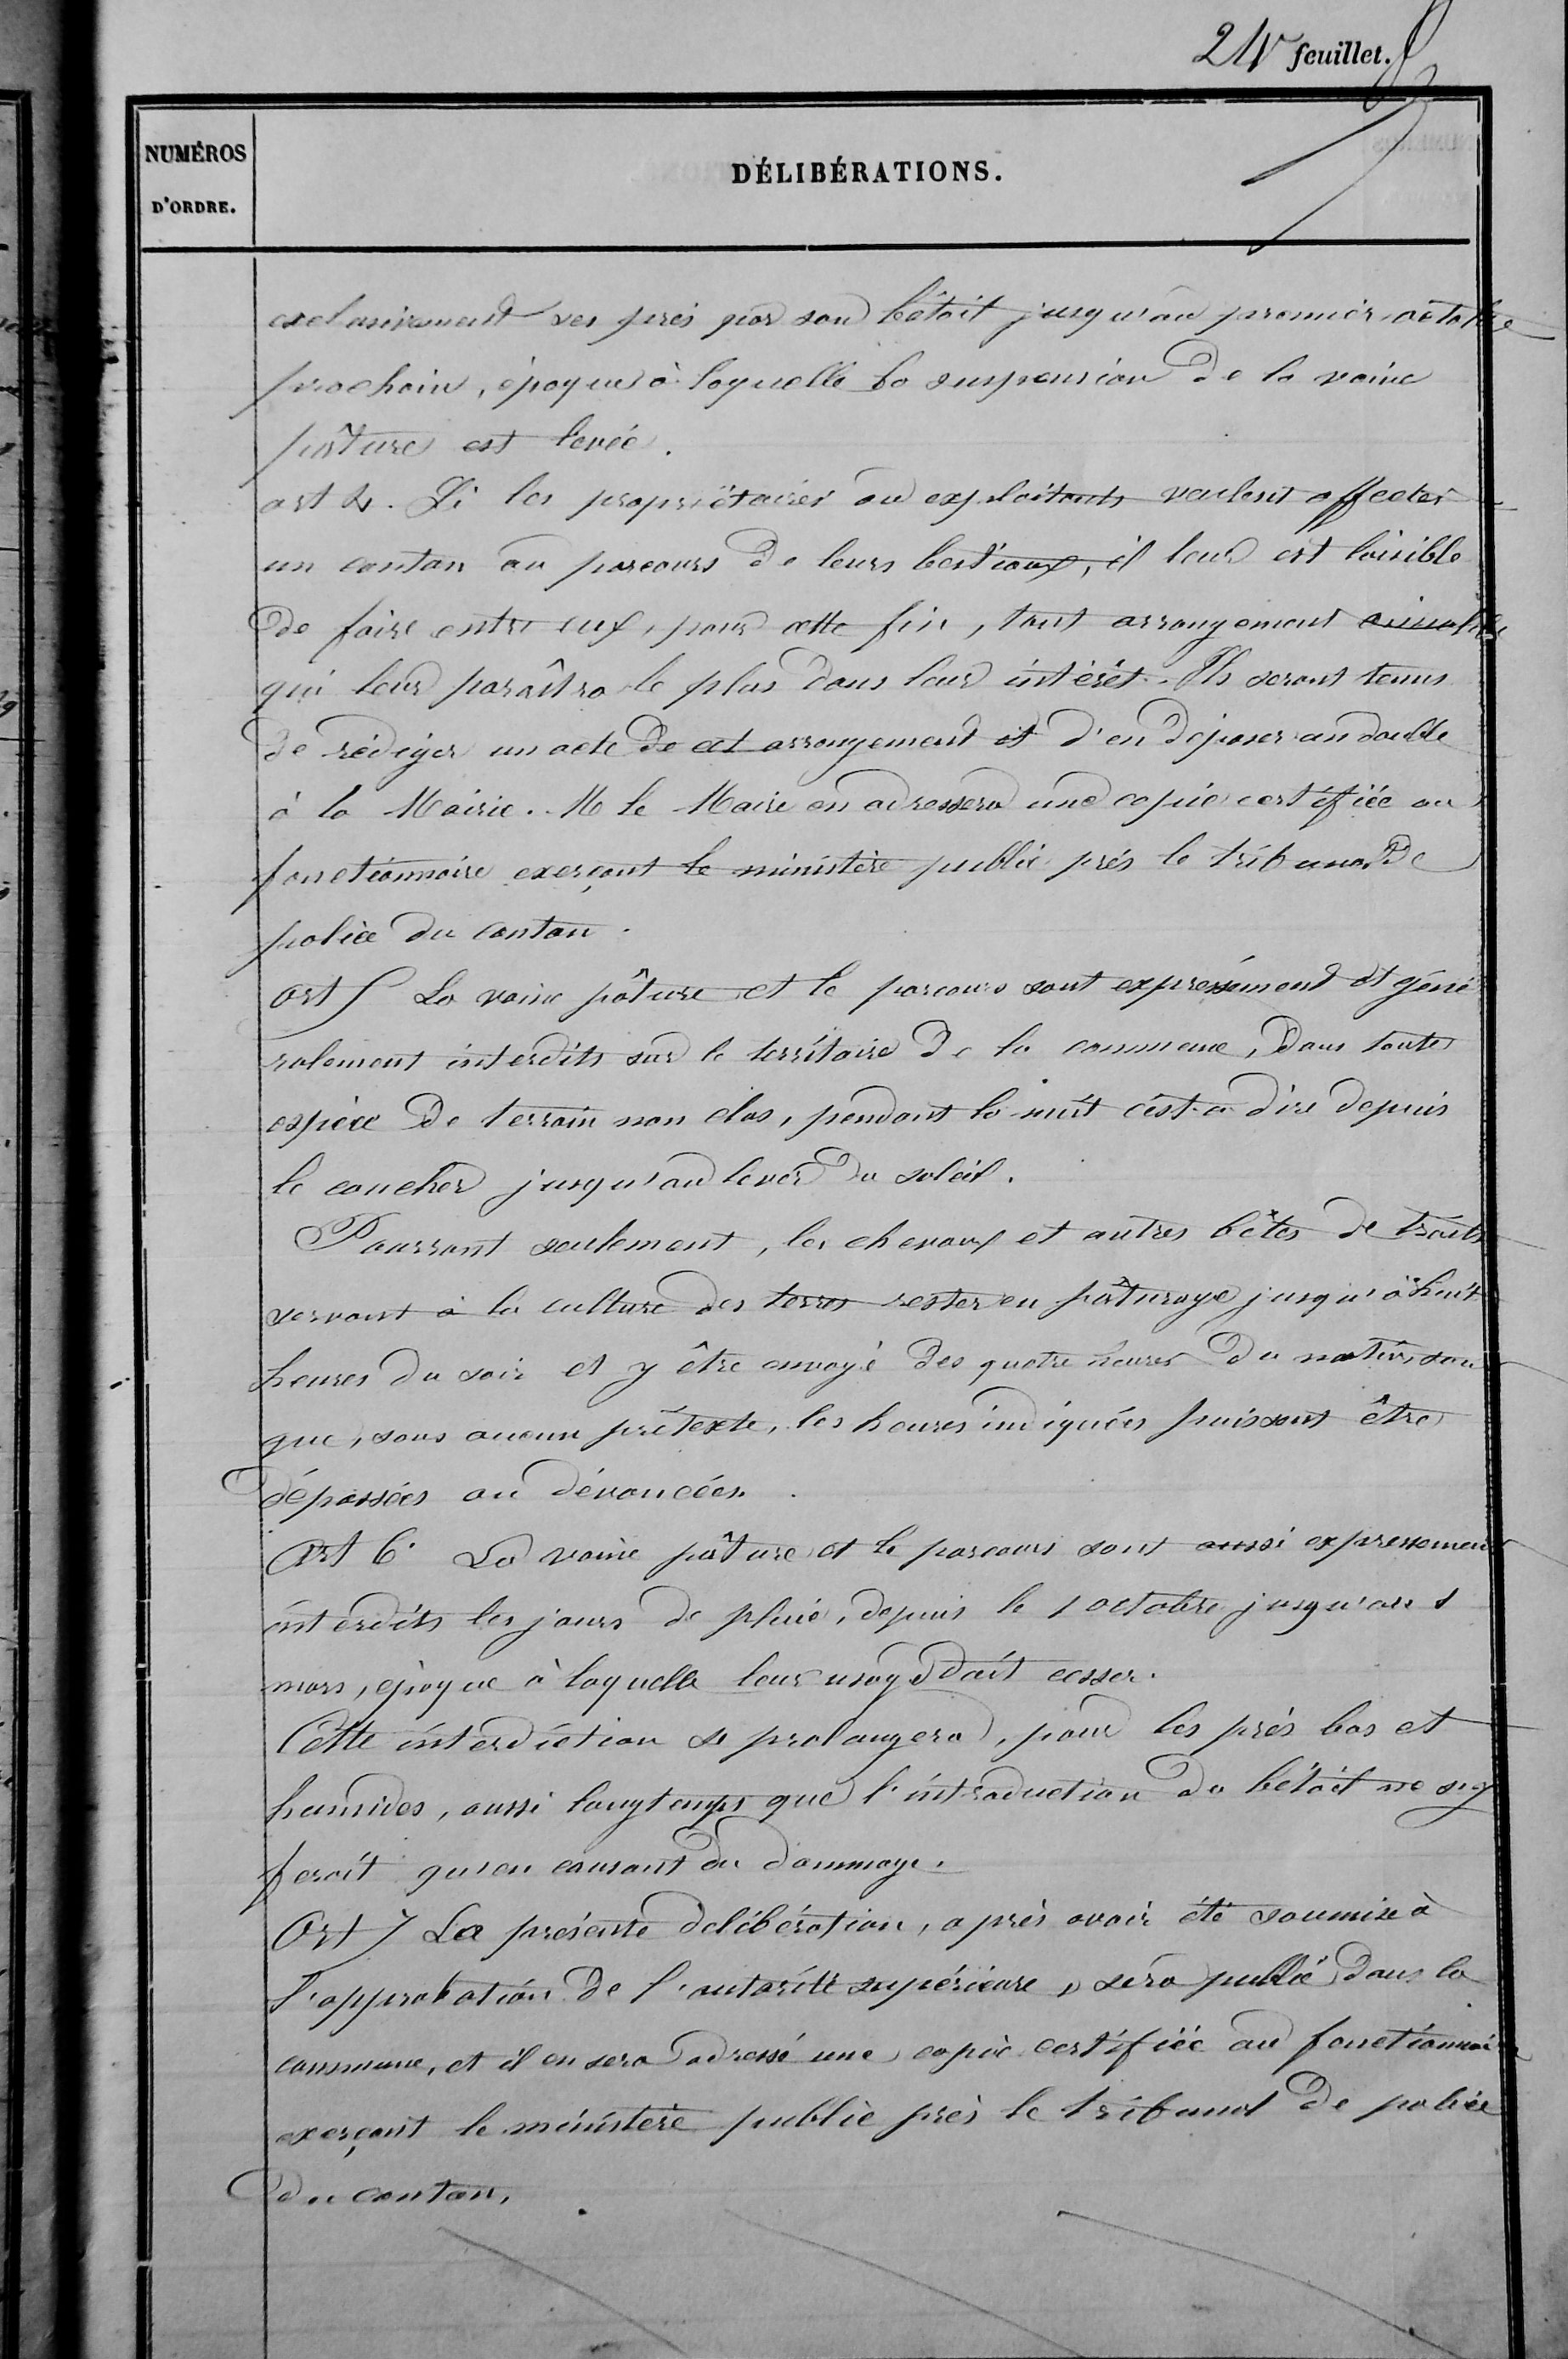 feuillet.
NUMÉROS
D'ORDRE.
DÉLIBÉRATIONS.
exclusivement ses prés par son bétail jusqu'au premier octobre
prochain, époque à laquelle la suspension de la vaine
pâture est levée.
art 4. Si les propriétaires ou exploitants veulent affecter
un canton au parcours de leurs bestiaux, il leur est loisible
de faire entre eux, pour cette fin, tout arrangement
qui leur paraîtra le plus dans leur intérêt. Ils seront tenus
de rédiger un acte de cet arrangement et d'en déposer un double
à la Mairie. M le Maire en adressera une copie certifiée au
fonctionnaire exerçant le ministère public près le tribunal de
police du canton.
art 5 La vaine pâture et le parcours sont expressément et géné
ralement interdits sur le territoire de la commune, dans toute
espèce de terrain non clos, pendant la nuit c'est-a dire depuis
le coucher jusqu'au lever du soleil.
Pourront seulement, les chevaux et autres bêtes de traits
servant à la culture des terres rester en pâturage jusqu'à huit
heures du soir et y être envoyé dès quatre heures du matin, sans
que, sous aucun prétexte, les heures indiquées puissent être
dépassées ou dévancées.
Art 6. La vaine pâture et le parcours sont aussi expressement
interdits les jours de pluie, depuis le 1 octobre jusqu'au 1
mars, époque à laquelle leur usage doit cesser.
Cette interdiction se prolongera, pour les prés bas et
humides, aussi longtemps que l'introduction du bétail ne s'y
ferait qu'en causant du dommage.
Art 7 La présente délibération, après avoir été soumise à
l'approbation de l'autorité supérieure, sera publié dans la
commune, et il en sera adressé une copie certifiée au fonctionnaire
exerçant le ministère public près le tribunal de police
du canton.